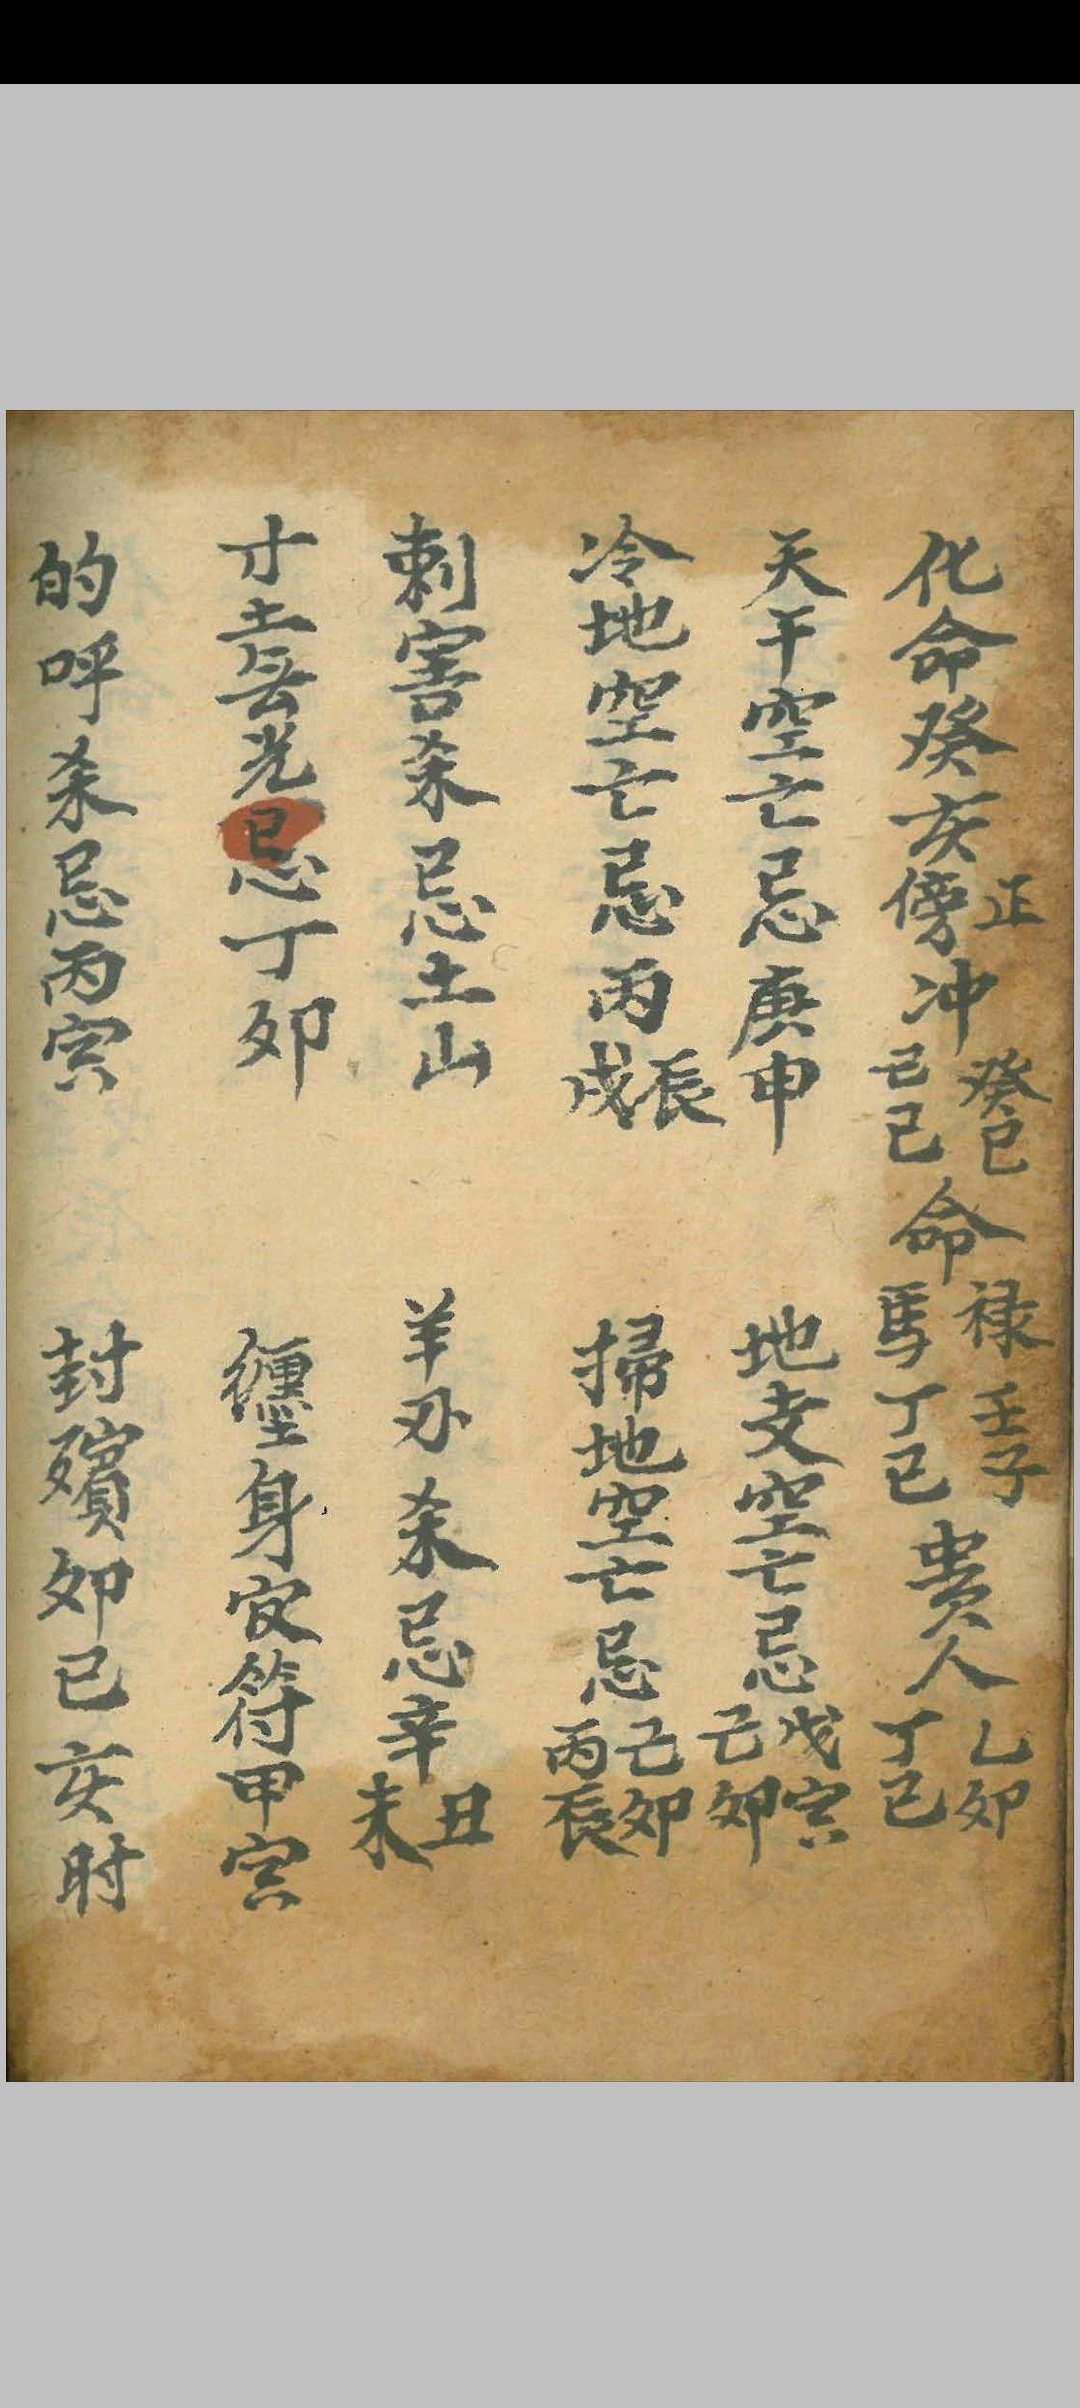 化命癸亥正傍冲癸巳己巳命禄壬子馬丁巳貴人乙卯丁巳
天干空亡忌庚申　地支空亡忌戊寅己卯
冷地空亡忌丙辰戌　掃地空亡忌己卯丙辰
刺害杀忌土山　羊刃杀忌辛丑未
寸土無光忌丁卯　纏身官符甲寅
的呼杀忌丙寅　封殯卯巳亥时